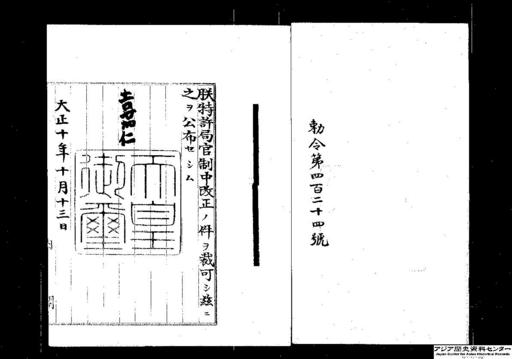 勅令第四百二十四號
朕特許局官制中改正ノ件ヲ裁可シ茲ニ
之ヲ公布セシム
嘉仁
天皇
御璽
大正十年十月十三日
内閣
アジア歴史資料センター
Japan Center for Asian Historical Records